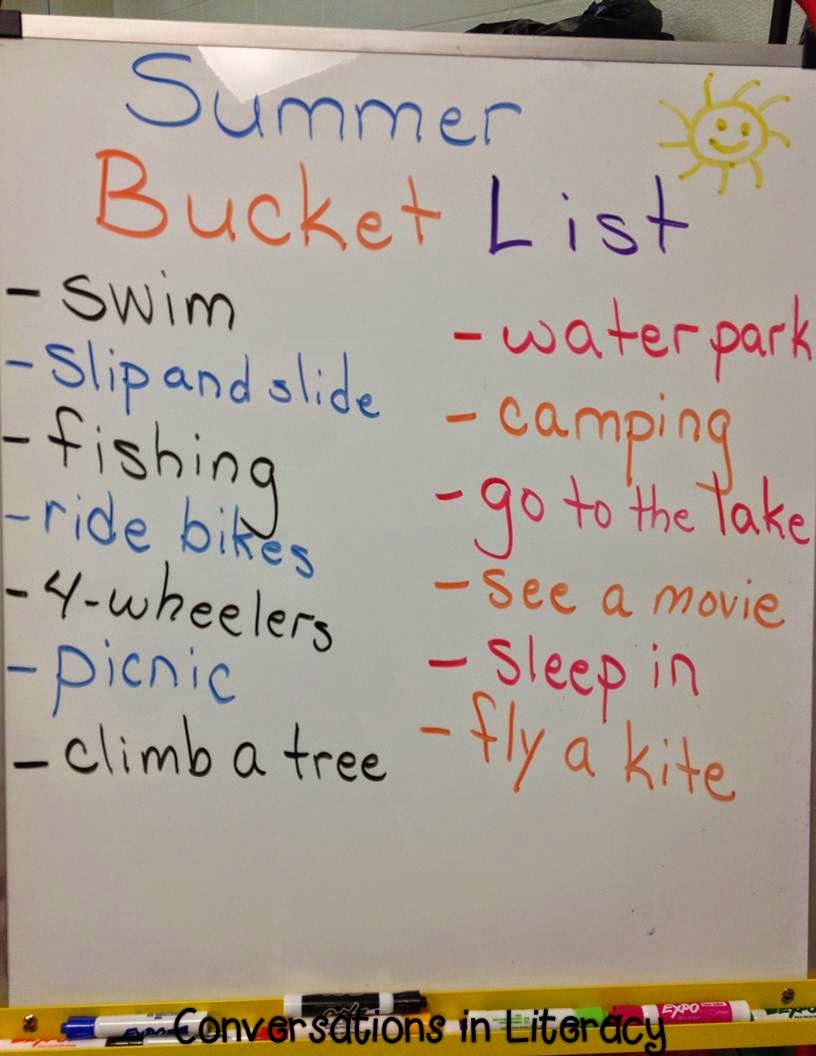 Summer
Bucket List
- swim
- slip and slide
- fishing
- ride bikes
- 4-wheelers
- picnic
- climb a tree
- water park
- camping
- go to the lake
- see a movie
- sleep in
- fly a kite
EXPO
Conversations in Literacy